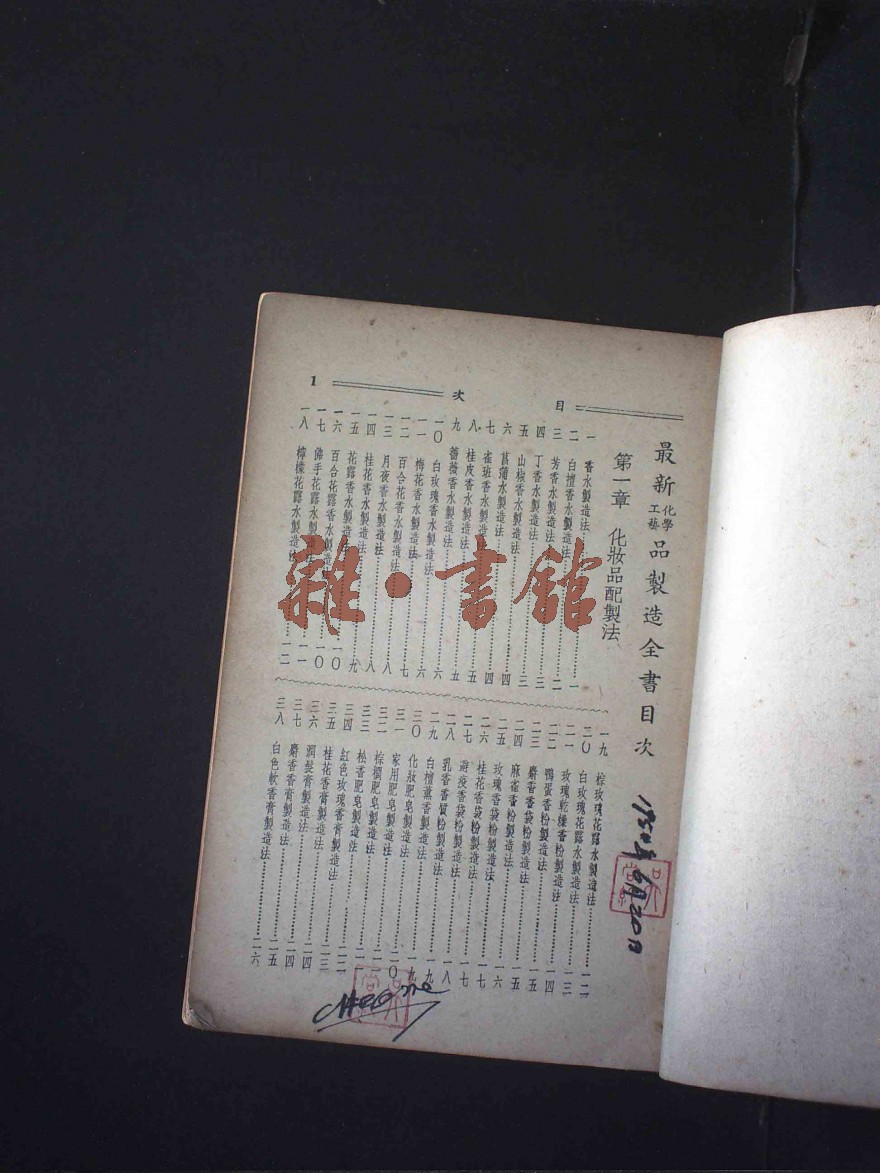 目次 1
最新化學工藝品製造全書目次
第一章 化妝品配製法
一 香水製造法……一
二 白檀香水製造法……二
三 芳香水製造法……三
四 丁香水製造法……三
五 山椒香水製造法……四
六 菖蒲水製造法……四
七 雀班香水製造法……五
八 桂皮香水製造法……五
九 薔薇香水製造法……六
一〇 白玫瑰香水製造法……六
一一 梅花香水製造法……七
一二 百合花香水製造法……八
一三 月夜香水製造法……八
一四 桂花香水製造法……九
一五 花露香水製造法……一〇
一六 百合花露香水製造法……一〇
一七 佛手花露水製造法……一一
一八 檸檬花露水製造法……一二
一九 棕玫瑰花露水製造法……一二
二〇 白玫瑰花露水製造法……一三
二一 玫瑰乾樣香粉製造法……一四
二二 鴨蛋香粉製造法……一五
二三 麝香香袋粉製造法……一五
二四 麻雀香粉製造法……一六
二五 玫瑰香袋粉製造法……一七
二六 桂花香袋粉製造法……一七
二七 避疫香袋粉製造法……一八
二八 乳香香質粉製造法……一九
二九 白檀薰香製造法……一九
三〇 化妝肥皂製造法……二〇
三一 家用肥皂製造法……二一
三二 棕櫚肥皂製造法……二一
三三 松香肥皂製造法……二二
三四 紅色玫瑰香膏製造法……二三
三五 桂花香膏製造法……二四
三六 潤髮膏製造法……二四
三七 麝香香膏製造法……二五
三八 白色軟香膏製造法……二六
6月20日
雜·書館